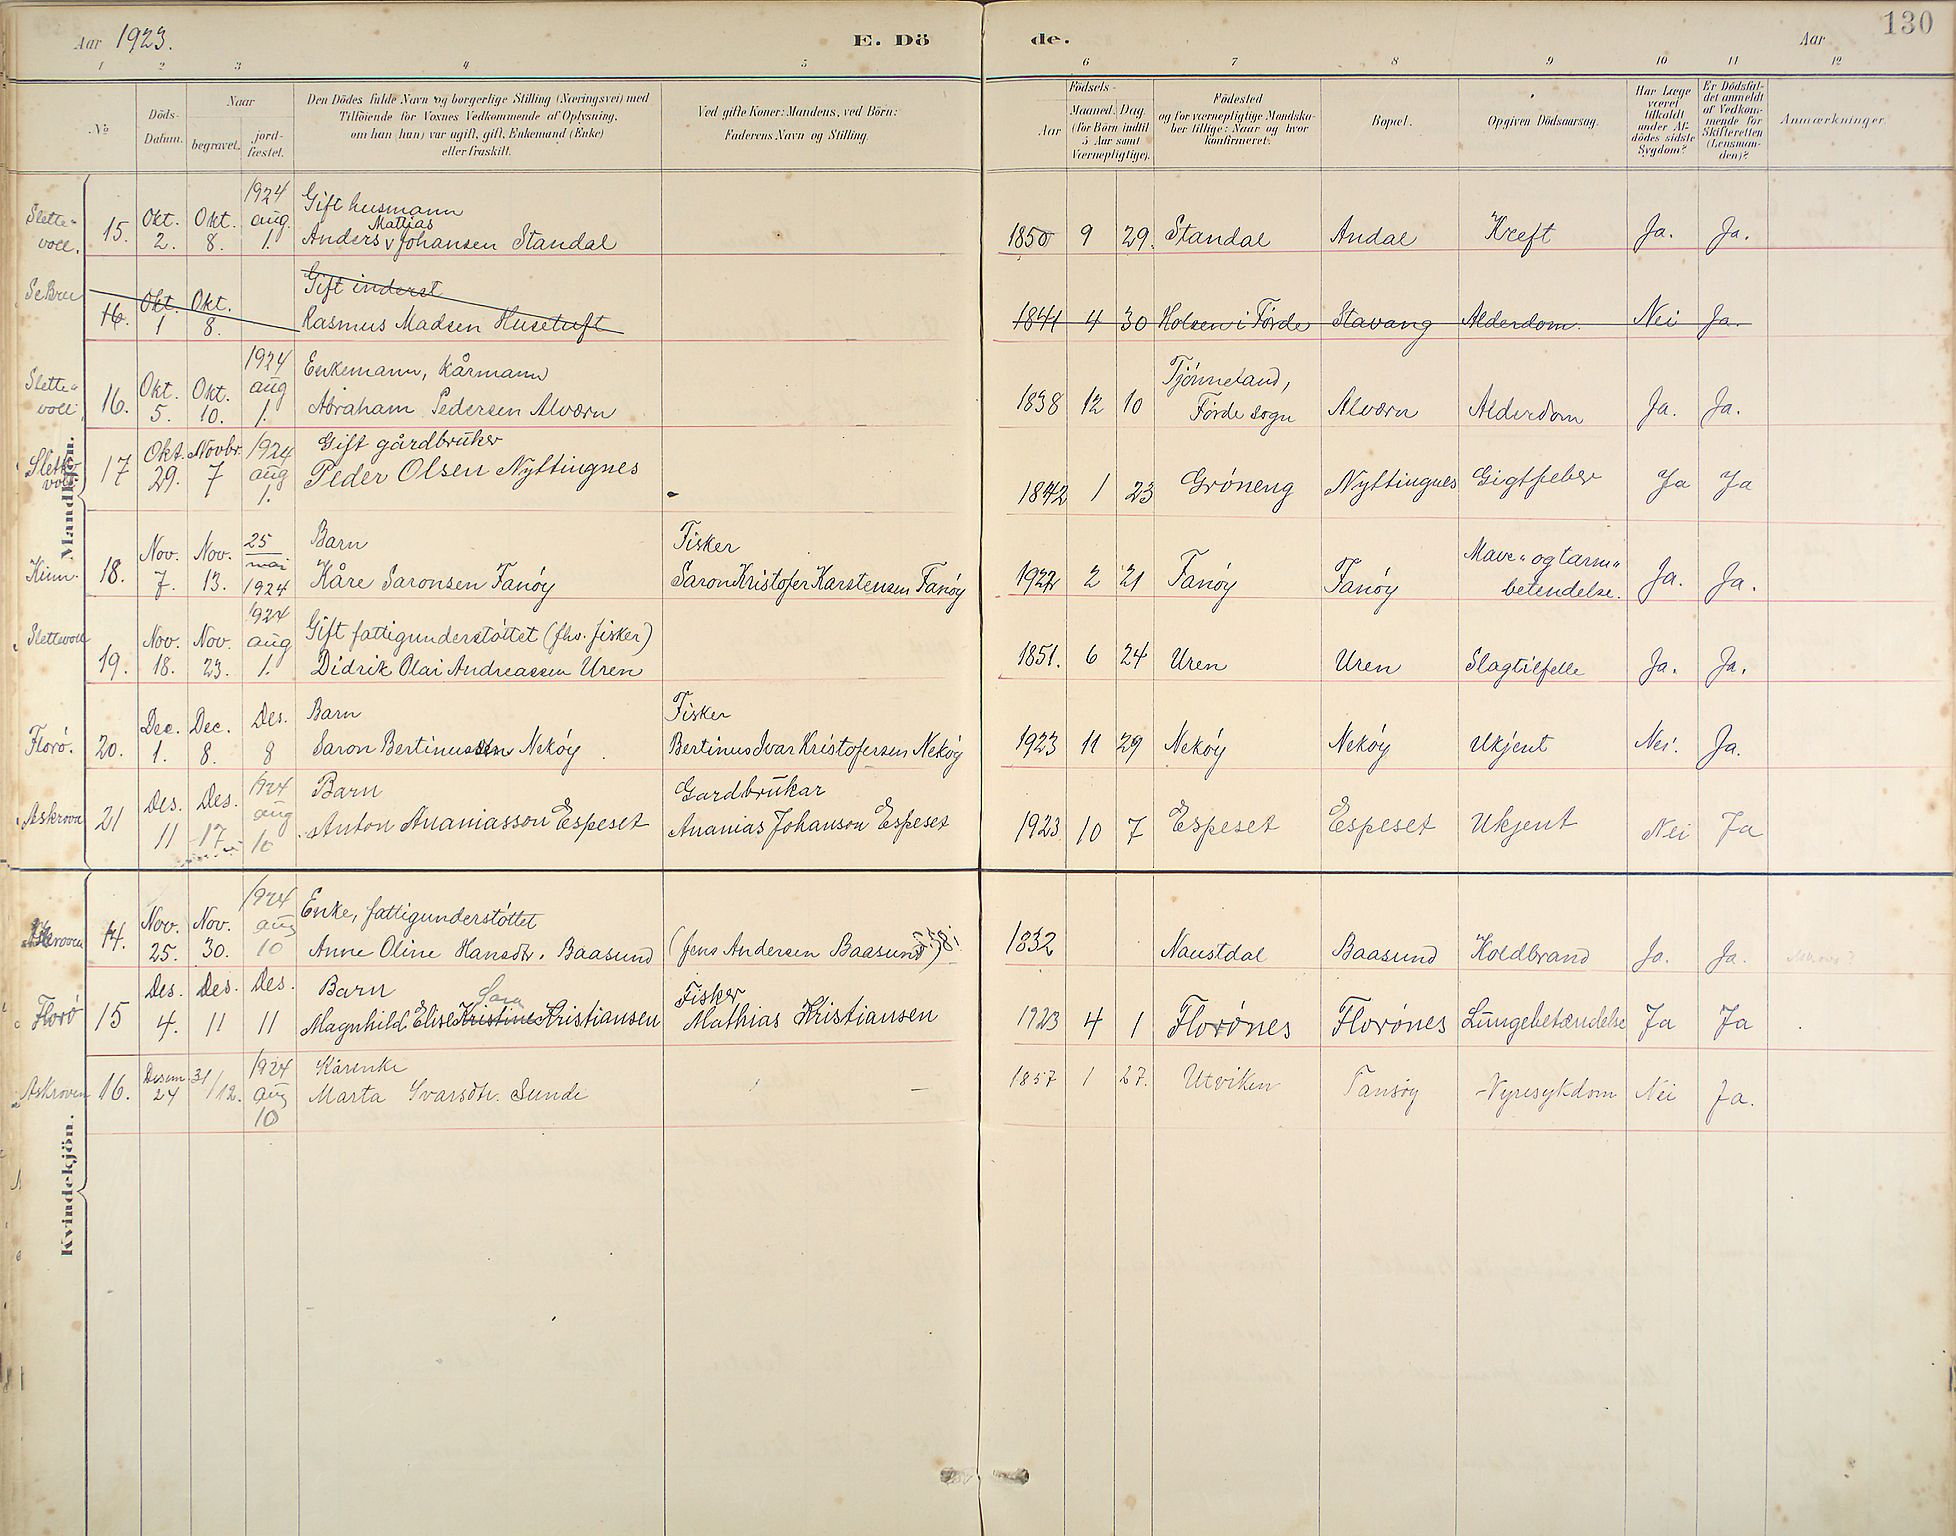 Aar 1923.
E. Dö de.
Aar
130
1 2 3 4 5 6 7 8 9 10 11 12
No
Döds-Datum.
Naar
begravet.
jord-fæstet.
Den Dödes fulde Navn og borgerlige Stilling (Næringsvei) med
Tilföiende for Voxnes Vedkommende af Oplysning,
om han (hun) var ugift, gift, Enkemand (Enke)
eller fraskilt.
Ved gifte Koner: Mandens, ved Börn:
Faderens Navn og Stilling.
Födsels-
Aar
Maaned. Dag.
(for Börn indtil
5 Aar samt
Værnepligtige).
Födested
og for værnepligtige Mandska-
ber tillige: Naar og hvor
konfirmeret.
Bopæl.
Opgiven Dödsaarsag.
Har Læge
været
tilkaldt
under Af-
dödes sidste
Sygdom?
Er Dödsfal-
det anmeldt
af Vedkom-
mende for
Skifteretten
(Lensman-
den)?
Anmærkninger.
Mandkjön.
Slette-
voll.
15. Okt. 2. Okt. 8. 1924 aug. 1.
Gift husmann
Mathias
Anders Johansen Standal
1850 9 29. Standal Andal Kreft Ja. Ja.
16. Okt. 1 Okt. 8.
Gift inderst
Rasmus Madsen Husetuft
1841 4 30 Holsen i Förde Stavang Alderdom. Nei Ja.
Slette-
voll.
16. Okt. 5. Okt. 10. 1924 aug 1.
Enkemann, kårmann
Abraham Pedersen Alværn
1838 12 10 Tjønneland, Førde sogn Alværn Alderdom Ja. Ja.
Slette-
voll
17 Okt. 29. Novbr. 7 1924 aug 1.
Gift gårdbruker
Peder Olsen Nyttingnes
1842 1 23 Grøneng Nyttingnes Gigtfeber Ja Ja
Kinn.
18. Nov. 7. Nov. 13. 25 mai 1924
Barn
Kåre Saronsen Fanøy
Fisker
Saron Kristofer Karstensen Fanøy
1922 2 21 Fanøy Fanøy Mave- og tarm-
betendelse. Ja. Ja.
Slettevoll
19. Nov. 18. Nov. 23. 1924 aug 1.
Gift fattigunderstøttet (fhv. fisker)
Didrik Olai Andreassen Uren
1851. 6 24 Uren Uren Slagtilfelle Ja. Ja.
Florö.
20. Dec. 1. Dec. 8. Des. 8
Barn
Saron Bertinussen Nekøy
Fisker
Bertinus Ivar Kristofersen Nekøy
1923 11 29 Nekøy Nekøy Ukjent Nei. Ja.
Askrova
21 Des. 11 Des. 17 1924 aug 10
Barn
Anton Ananiasson Espeset
Gardbrukar
Ananias Johanson Espeset
1923 10 7 Espeset Espeset Ukjent Nei Ja
Kvindekjön.
Askroven
14. Nov. 25. Nov. 30. 1924 aug 10
Enke, fattigunderstøttet
Anne Oline Hansdtr. Baasund
(Jens Andersen Baasund)
1832 Naustdal Baasund Koldbrand Ja. Ja.
Florö
15 Des. 4. Des. 11 Des. 11
Barn
Sara
Magnhild Elise Kristine Kristiansen
Fisker
Mathias Kristiansen
1923 4 1 Florønes Florønes Lungebetændelse Ja Ja
Askroven
16. Desem 24 31/12. 1924 aug 10
Kårenke
Marta Ivarsdtr. Sunde
1857 1 27. Utviken Tansøy Nyresykdom Nei Ja.